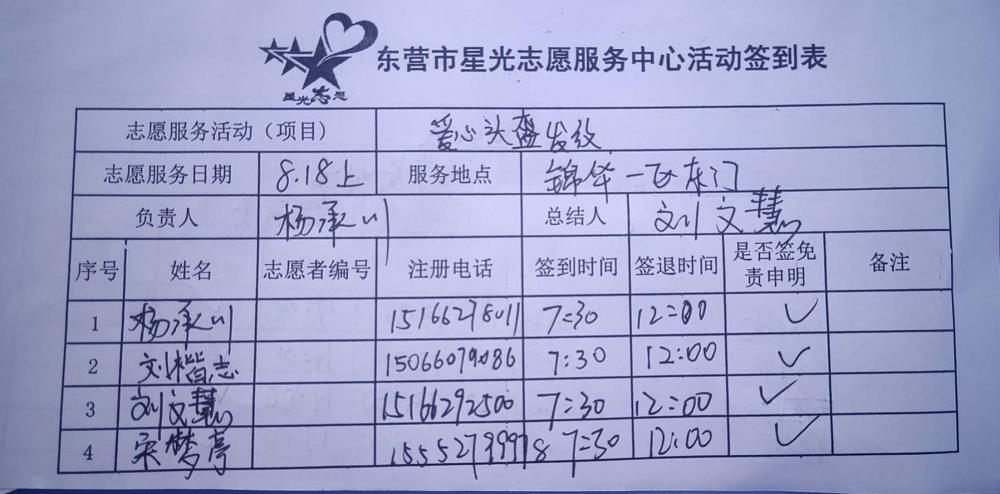 星光志愿
东营市星光志愿服务中心活动签到表
志愿服务活动（项目） 爱心头盔发放
志愿服务日期 8.18上 服务地点 锦华一区东门
负责人 杨承川 总结人 刘文慧
序号 姓名 志愿者编号 注册电话 签到时间 签退时间 是否签免责申明 备注
1 杨承川 15166278011 7:30 12:00 ✓
2 刘楷志 15066079086 7:30 12:00 ✓
3 刘文慧 15166292500 7:30 12:00 ✓
4 宋梦亭 15552799978 7:30 12:00 ✓